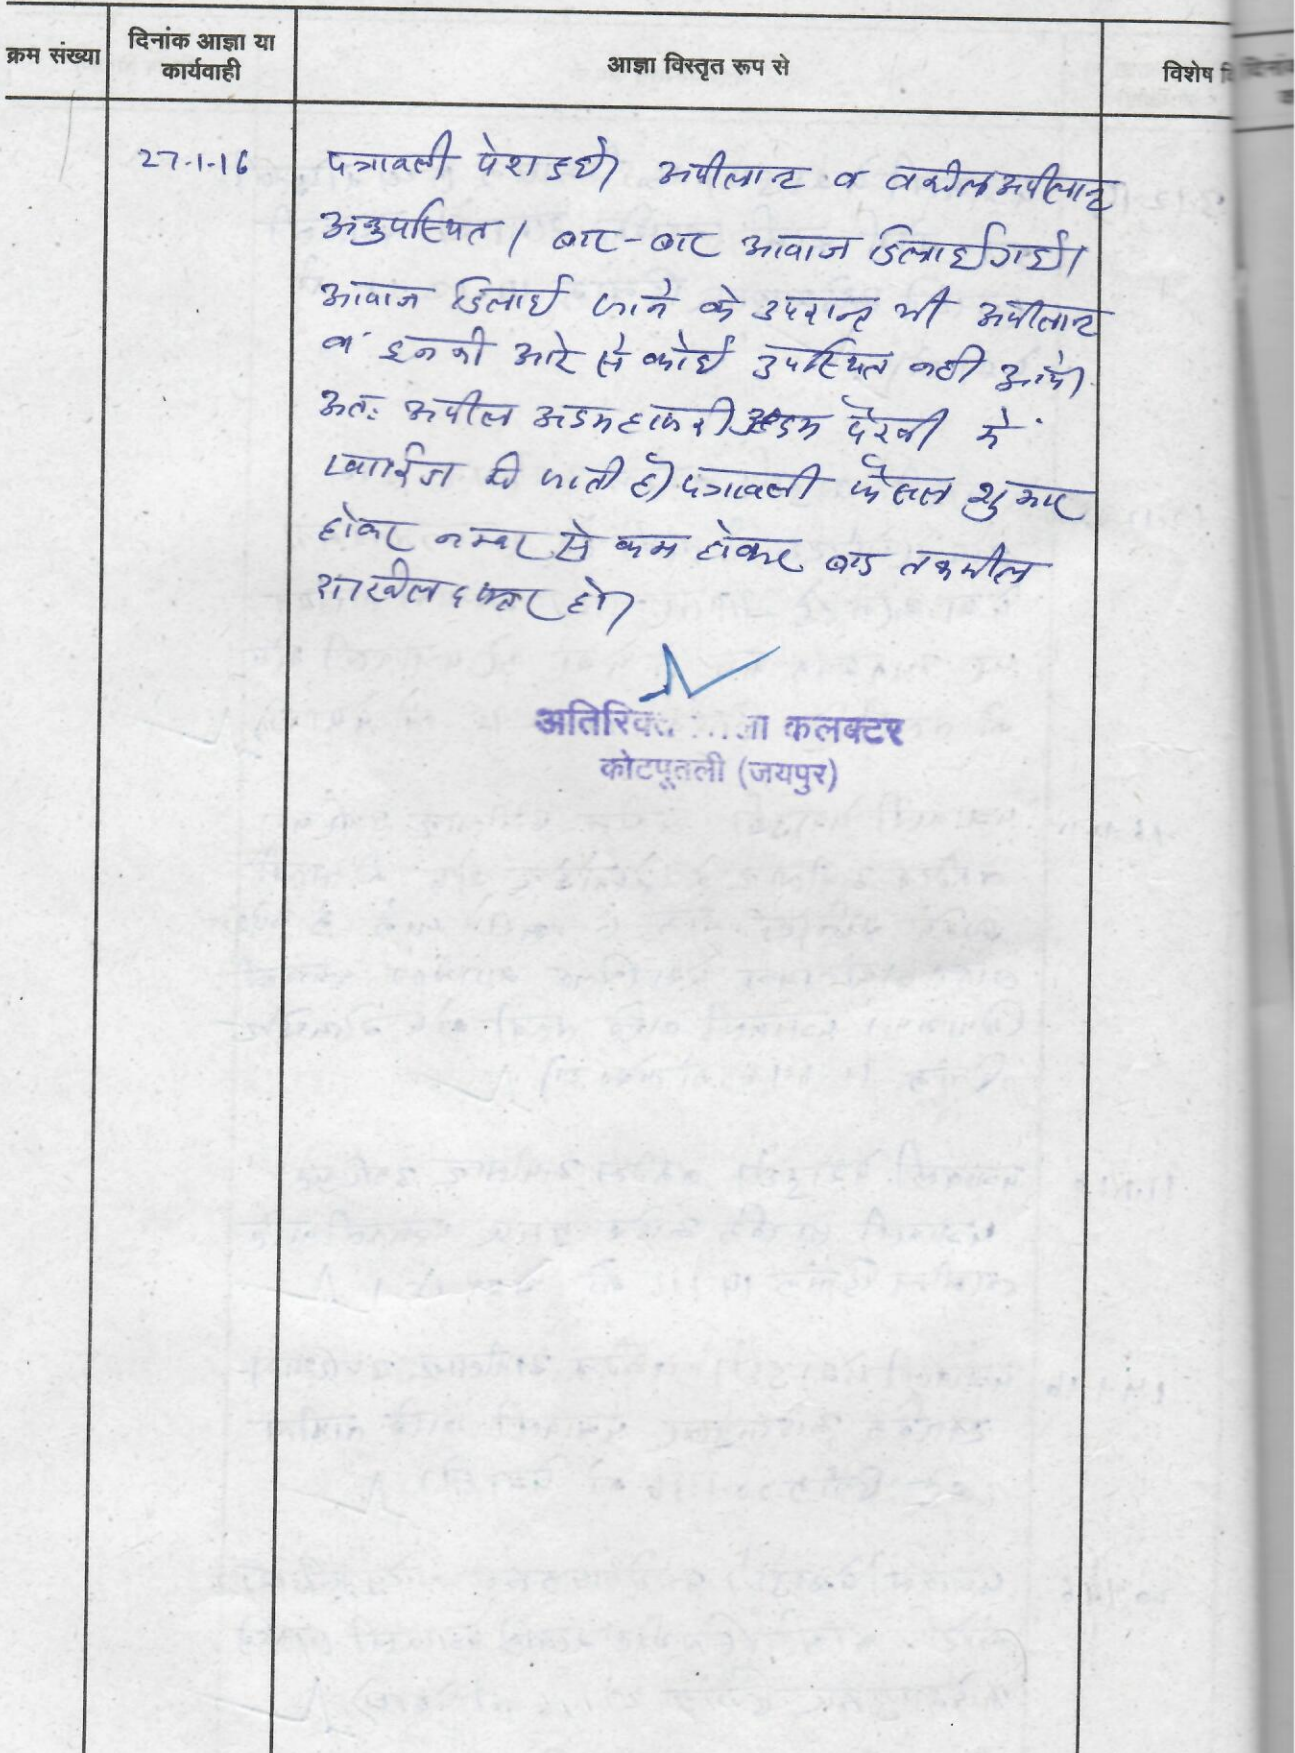 क्रम संख्या
दिनांक आज्ञा या
कार्यवाही
आज्ञा विस्तृत रूप से
विशेष
27-1-16
पत्रावली पेश हुई। अपीलान्ट व वकील अपीलान्ट
अनुपस्थित। बार-बार आवाज दिलाई गई।
आवाज दिलाई जाने के उपरान्त भी अपीलान्ट
व इनकी ओर से कोई उपस्थित नही आये।
अतः अपील अदम हाजरी अदम पैरवी मे
खारीज की जाती है। पत्रावली फैसल शुमार
होकर नम्बर से कम होकर बाद तकमील
दाखील दफ्तर हो।
अतिरिक्त कलक्टर
कोटपूतली (जयपुर)